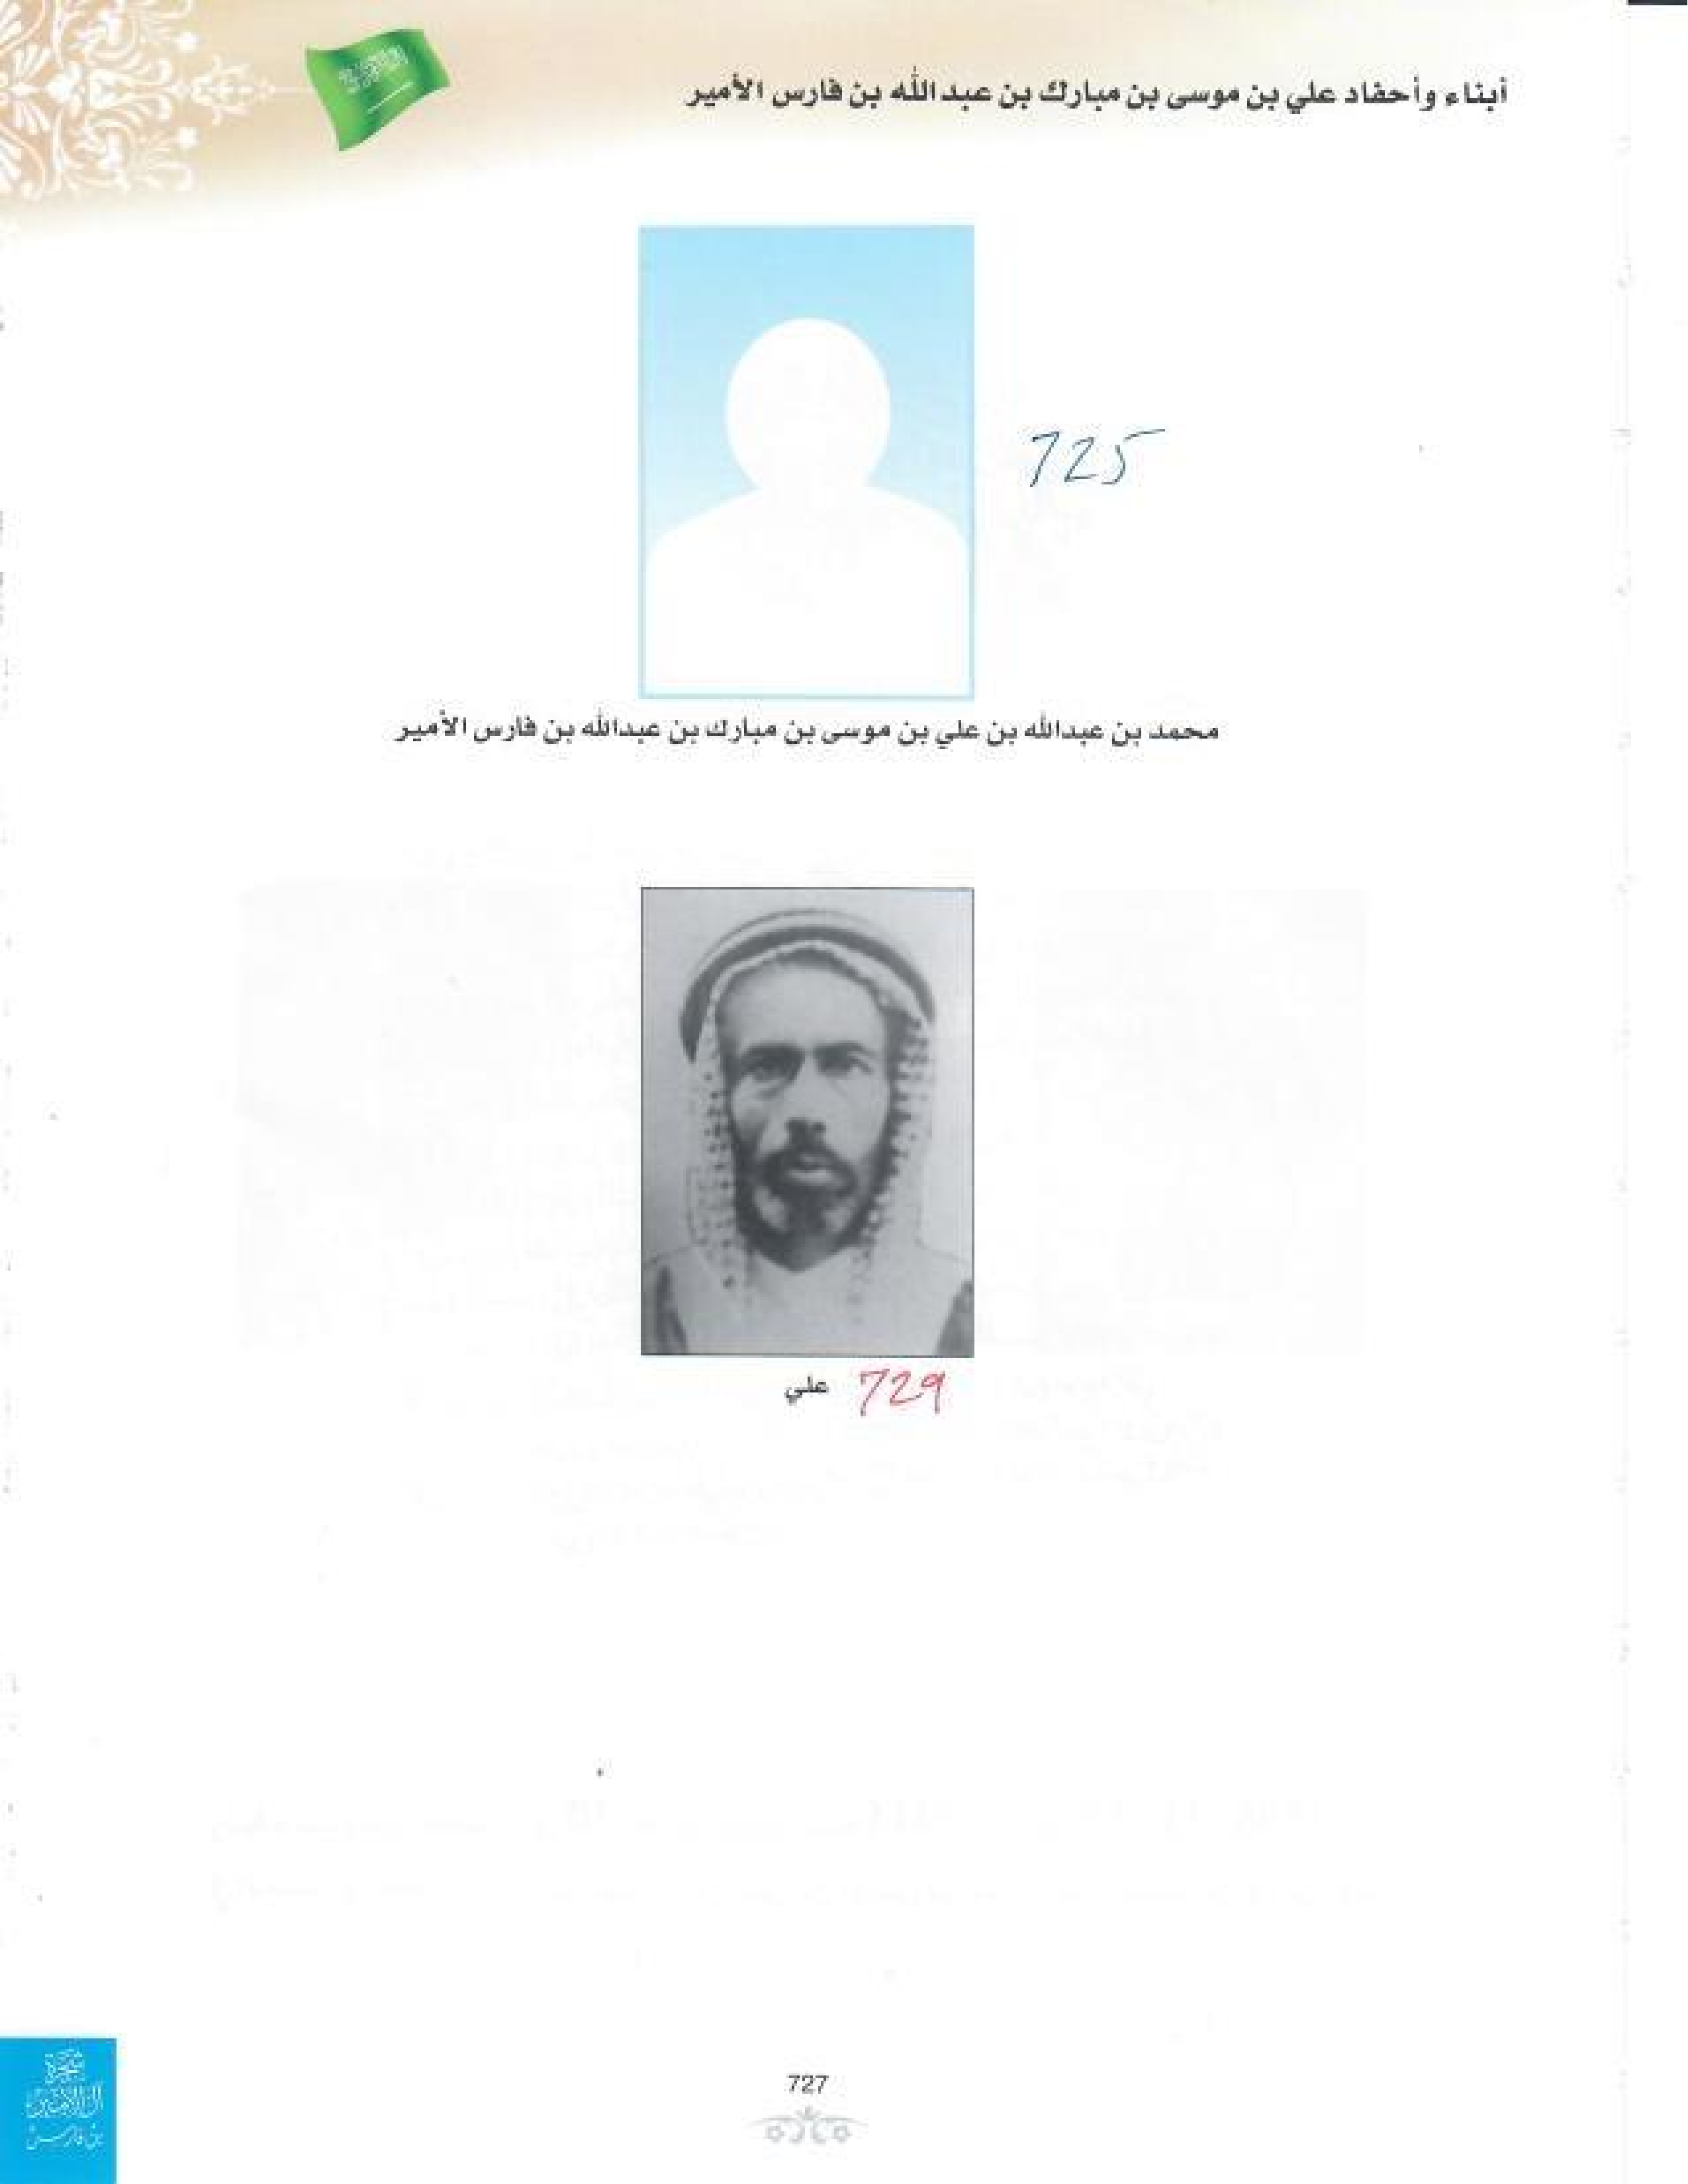 أبناء وأحفاد علي بن موسى بن مبارك بن عبد الله بن فارس الأمير
725
محمد بن عبدالله بن علي بن موسى بن مبارك بن عبدالله بن فارس الأمير
علي 729
727
شجرة
آل الأمير
بن فارس